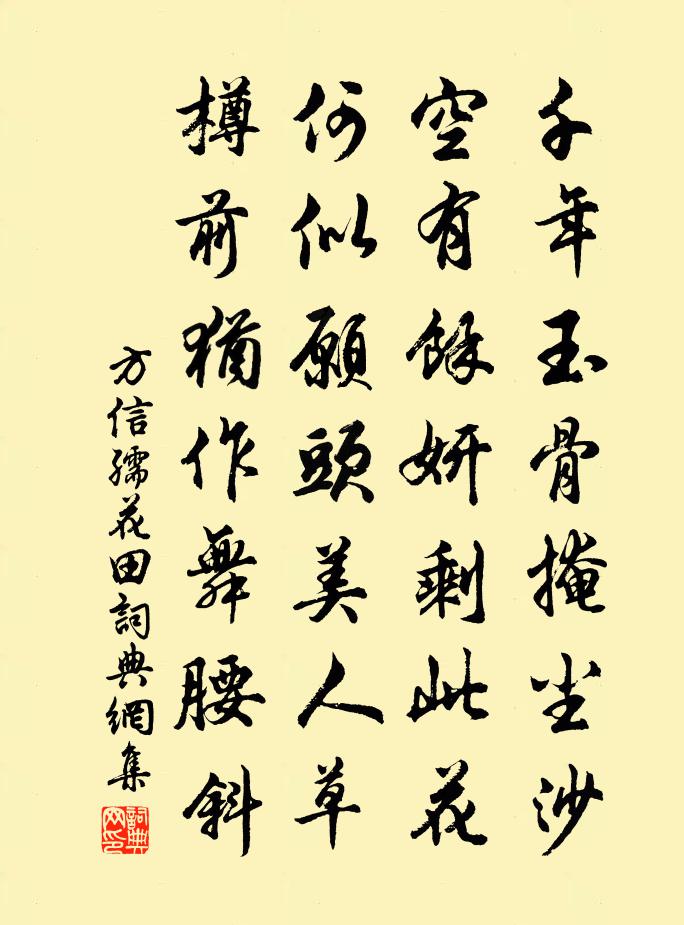 千年玉骨掩尘沙
空有餘妍剩此花
何似願頭美人草
樽前猶作舞腰斜
方信孺花田詞典網集
詞典网印